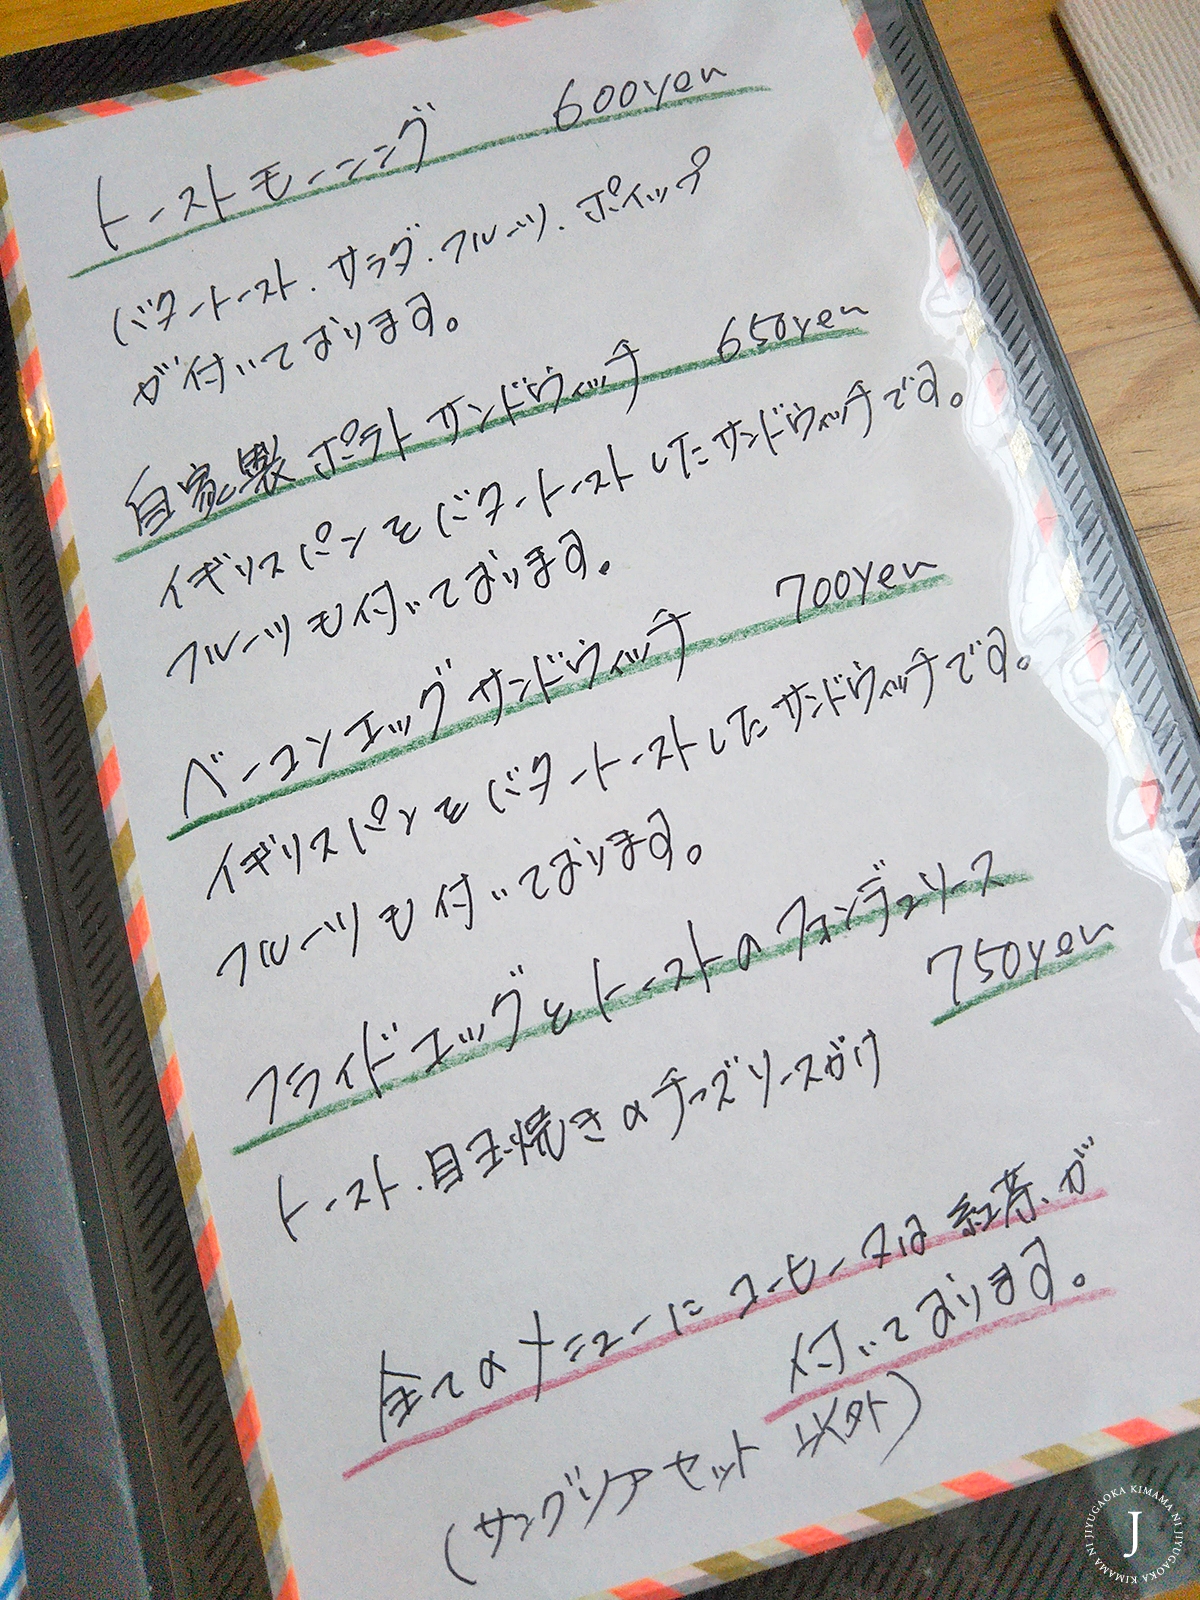 トーストモーニング 600yen
バタートースト.サラダ.フルーツ.ホイップ
が付いております。
自家製ポテトサンドウィッチ 650yen
イギリスパンをバタートーストしたサンドウィッチです。
フルーツも付いております。
ベーコンエッグサンドウィッチ 700yen
イギリスパンをバタートーストしたサンドウィッチです。
フルーツも付いております。
フライドエッグとトーストのフォンデュソース
750yen
トースト.目玉焼きのチーズソースがけ
全てのメニューにコーヒー又は紅茶.が
付いております。
(サングリアセット以外)
JIYUGAOKA KIMAMA NI JIYUGAOKA KIMAMA NI
J